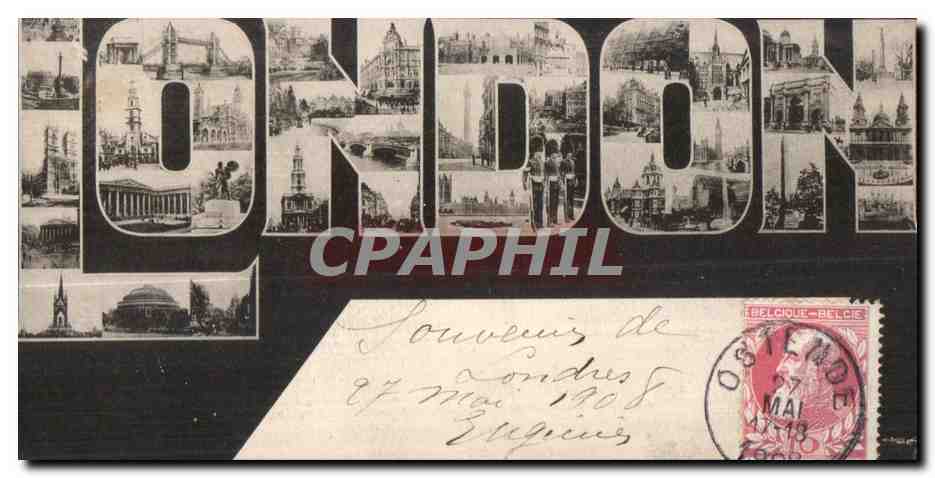 LONDON
CPAPHIL
Souvenir de
Londres
27 Mai 1908
Eugénie
BELGIQUE-BELGIE
OSTENDE
27
MAI
17-18
1908
10